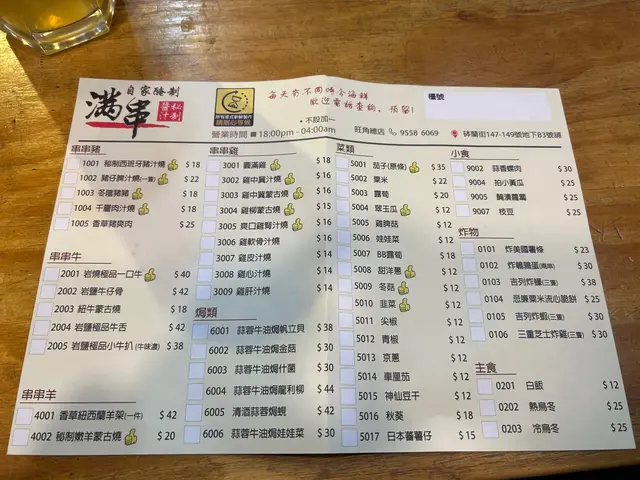 自家醃制
滿串
醬秘
汁制
所有串式新鮮製作
請耐心等候
每天有不同時令海鮮
歡迎電話查詢，預留!
~不設加一~
檯號
營業時間 18:00pm - 04:00am 旺角總店 9558 6069 砵蘭街147-149號地下B3號舖
串串豬
1001 秘制西班牙豬汁燒 $ 18
1002 豬仔脾汁燒(一隻) $ 22
1003 冬蔭豬豬 $ 18
1004 千層肉汁燒 $ 18
1005 香草豬爽肉 $ 25
串串牛
2001 岩燒極品一口牛 $ 40
2002 岩鹽牛仔骨 $ 42
2003 紐牛蒙古燒 $ 18
2004 岩鹽極品牛舌 $ 42
2005 岩鹽極品小牛扒 (牛味濃) $ 38
串串羊
4001 香草紐西蘭羊架(一件) $ 42
4002 秘制嫩羊蒙古燒 $ 20
串串雞
3001 靈滿雞 $ 18
3002 雞中翼汁燒 $ 16
3003 雞中翼蒙古燒 $ 16
3004 雞柳蒙古燒 $ 15
3005 爽口雞腎汁燒 $ 16
3006 雞軟骨汁燒 $ 14
3007 雞皮汁燒 $ 14
3008 雞心汁燒 $ 14
3009 雞肝汁燒 $ 14
焗類
6001 蒜蓉牛油焗帆立貝 $ 38
6002 蒜蓉牛油焗金菇 $ 30
6003 蒜蓉牛油焗什菌 $ 30
6004 蒜蓉牛油焗龍利柳 $ 44
6005 清酒蒜蓉焗蜆 $ 42
6006 蒜蓉牛油焗娃娃菜 $ 30
菜類
5001 茄子(原條) $ 35
5002 粟米 $ 22
5003 露筍 $ 20
5004 翠玉瓜 $ 12
5005 雞脾菇 $ 12
5006 娃娃菜 $ 12
5007 BB露筍 $ 18
5008 甜洋蔥 $ 12
5009 冬菇 $ 12
5010 韭菜 $ 12
5011 尖椒 $ 12
5012 青椒 $ 12
5013 京蔥 $ 12
5014 車厘茄 $ 12
5015 神仙豆干 $ 12
5016 秋葵 $ 18
5017 日本蕃薯仔 $ 15
小食
9002 蒜香螺肉 $ 30
9004 拍小黃瓜 $ 25
9005 醃漬蘿蔔 $ 25
9007 枝豆 $ 25
炸物
0101 炸美國薯條 $ 23
0102 炸鵪鶉蛋(兩串) $ 30
0103 吉列炸蠔(三隻) $ 38
0104 忌廉粟米流心脆餅 $ 25
0105 吉列炸蝦(三隻) $ 30
0106 三重芝士炸雞(三隻) $ 30
主食
0201 白飯 $ 12
0202 熱烏冬 $ 25
0203 冷烏冬 $ 25